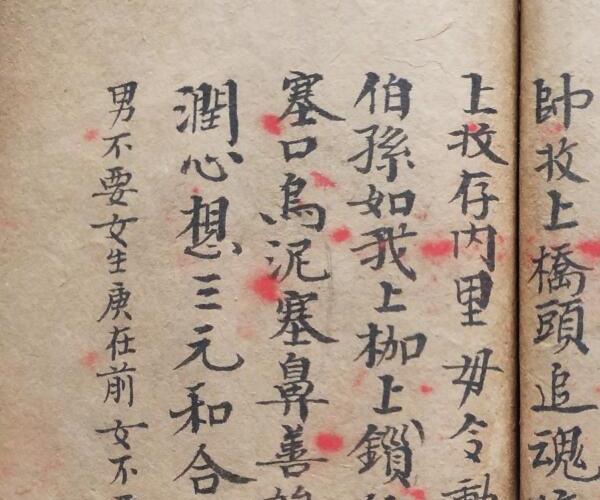 帥收上橋頭追魂
上收存内里毋令動
伯孫如我上枷上鎖
塞口烏泥塞鼻善
潤心想三元和合
男不要女生庚在前女不